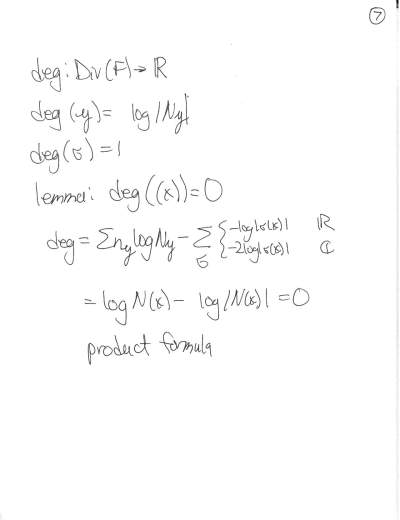 7
deg: Div(F) → ℝ
deg(𝔭) = log|N𝔭|
deg(σ) = 1
lemma: deg((x)) = 0
deg = Σn𝔭 log N𝔭 - Σσ { -log|σ(x)| ℝ
-2log|σ(x)| ℂ
= log N(x) - log|N(x)| = 0
product formula